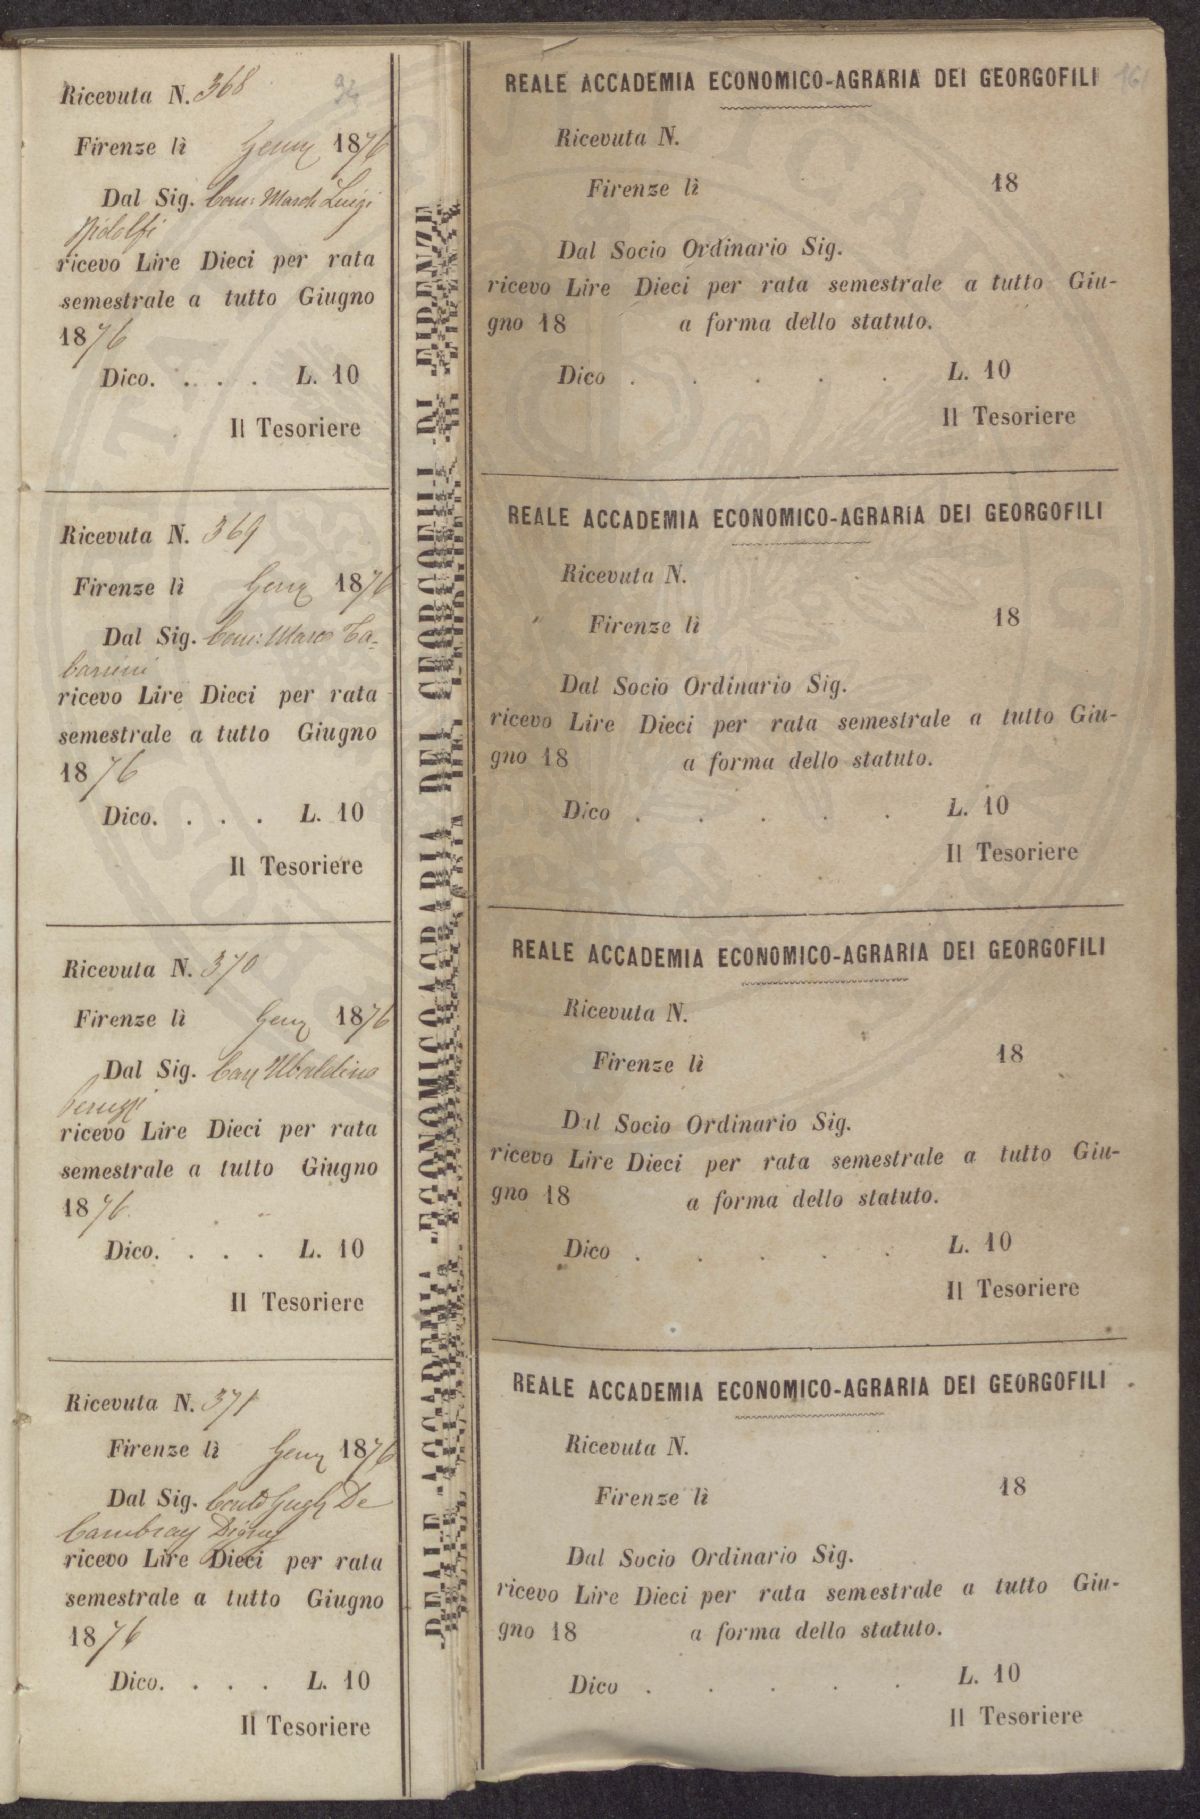 Ricevuta N. 368
94
Firenze lì Genn 1876
Dal Sig. Com: March Luigi
Ridolfi
ricevo Lire Dieci per rata
semestrale a tutto Giugno
1876
Dico. . . . . L. 10
Il Tesoriere
Ricevuta N. 369
Firenze lì Genn 1876
Dal Sig. Com: Marco Ta-
barrini
ricevo Lire Dieci per rata
semestrale a tutto Giugno
1876
Dico. . . . L. 10
Il Tesoriere
Ricevuta N. 370
Firenze lì Genn 1876
Dal Sig. Cav Ubaldino
Peruzzi
ricevo Lire Dieci per rata
semestrale a tutto Giugno
1876
Dico. . . . L. 10
Il Tesoriere
Ricevuta N. 371
Firenze lì Genn 1876
Dal Sig. De
Cambray Digny
ricevo Lire Dieci per rata
semestrale a tutto Giugno
1876
Dico. . . . L. 10
Il Tesoriere
REALE ACCADEMIA ECONOMICO AGRARIA DEI GEORGOFILI DI FIRENZE
REALE ACCADEMIA ECONOMICO-AGRARIA DEI GEORGOFILI
161
Ricevuta N.
Firenze lì 18
Dal Socio Ordinario Sig.
ricevo Lire Dieci per rata semestrale a tutto Giu-
gno 18 a forma dello statuto.
Dico . . . . . L. 10
Il Tesoriere
REALE ACCADEMIA ECONOMICO-AGRARIA DEI GEORGOFILI
Ricevuta N.
Firenze lì 18
Dal Socio Ordinario Sig.
ricevo Lire Dieci per rata semestrale a tutto Giu-
gno 18 a forma dello statuto.
Dico . . . . . L. 10
Il Tesoriere
REALE ACCADEMIA ECONOMICO-AGRARIA DEI GEORGOFILI
Ricevuta N.
Firenze lì 18
Dal Socio Ordinario Sig.
ricevo Lire Dieci per rata semestrale a tutto Giu-
gno 18 a forma dello statuto.
Dico . . . . . L. 10
Il Tesoriere
REALE ACCADEMIA ECONOMICO-AGRARIA DEI GEORGOFILI
Ricevuta N.
Firenze lì 18
Dal Socio Ordinario Sig.
ricevo Lire Dieci per rata semestrale a tutto Giu-
gno 18 a forma dello statuto.
Dico . . . . . L. 10
Il Tesoriere